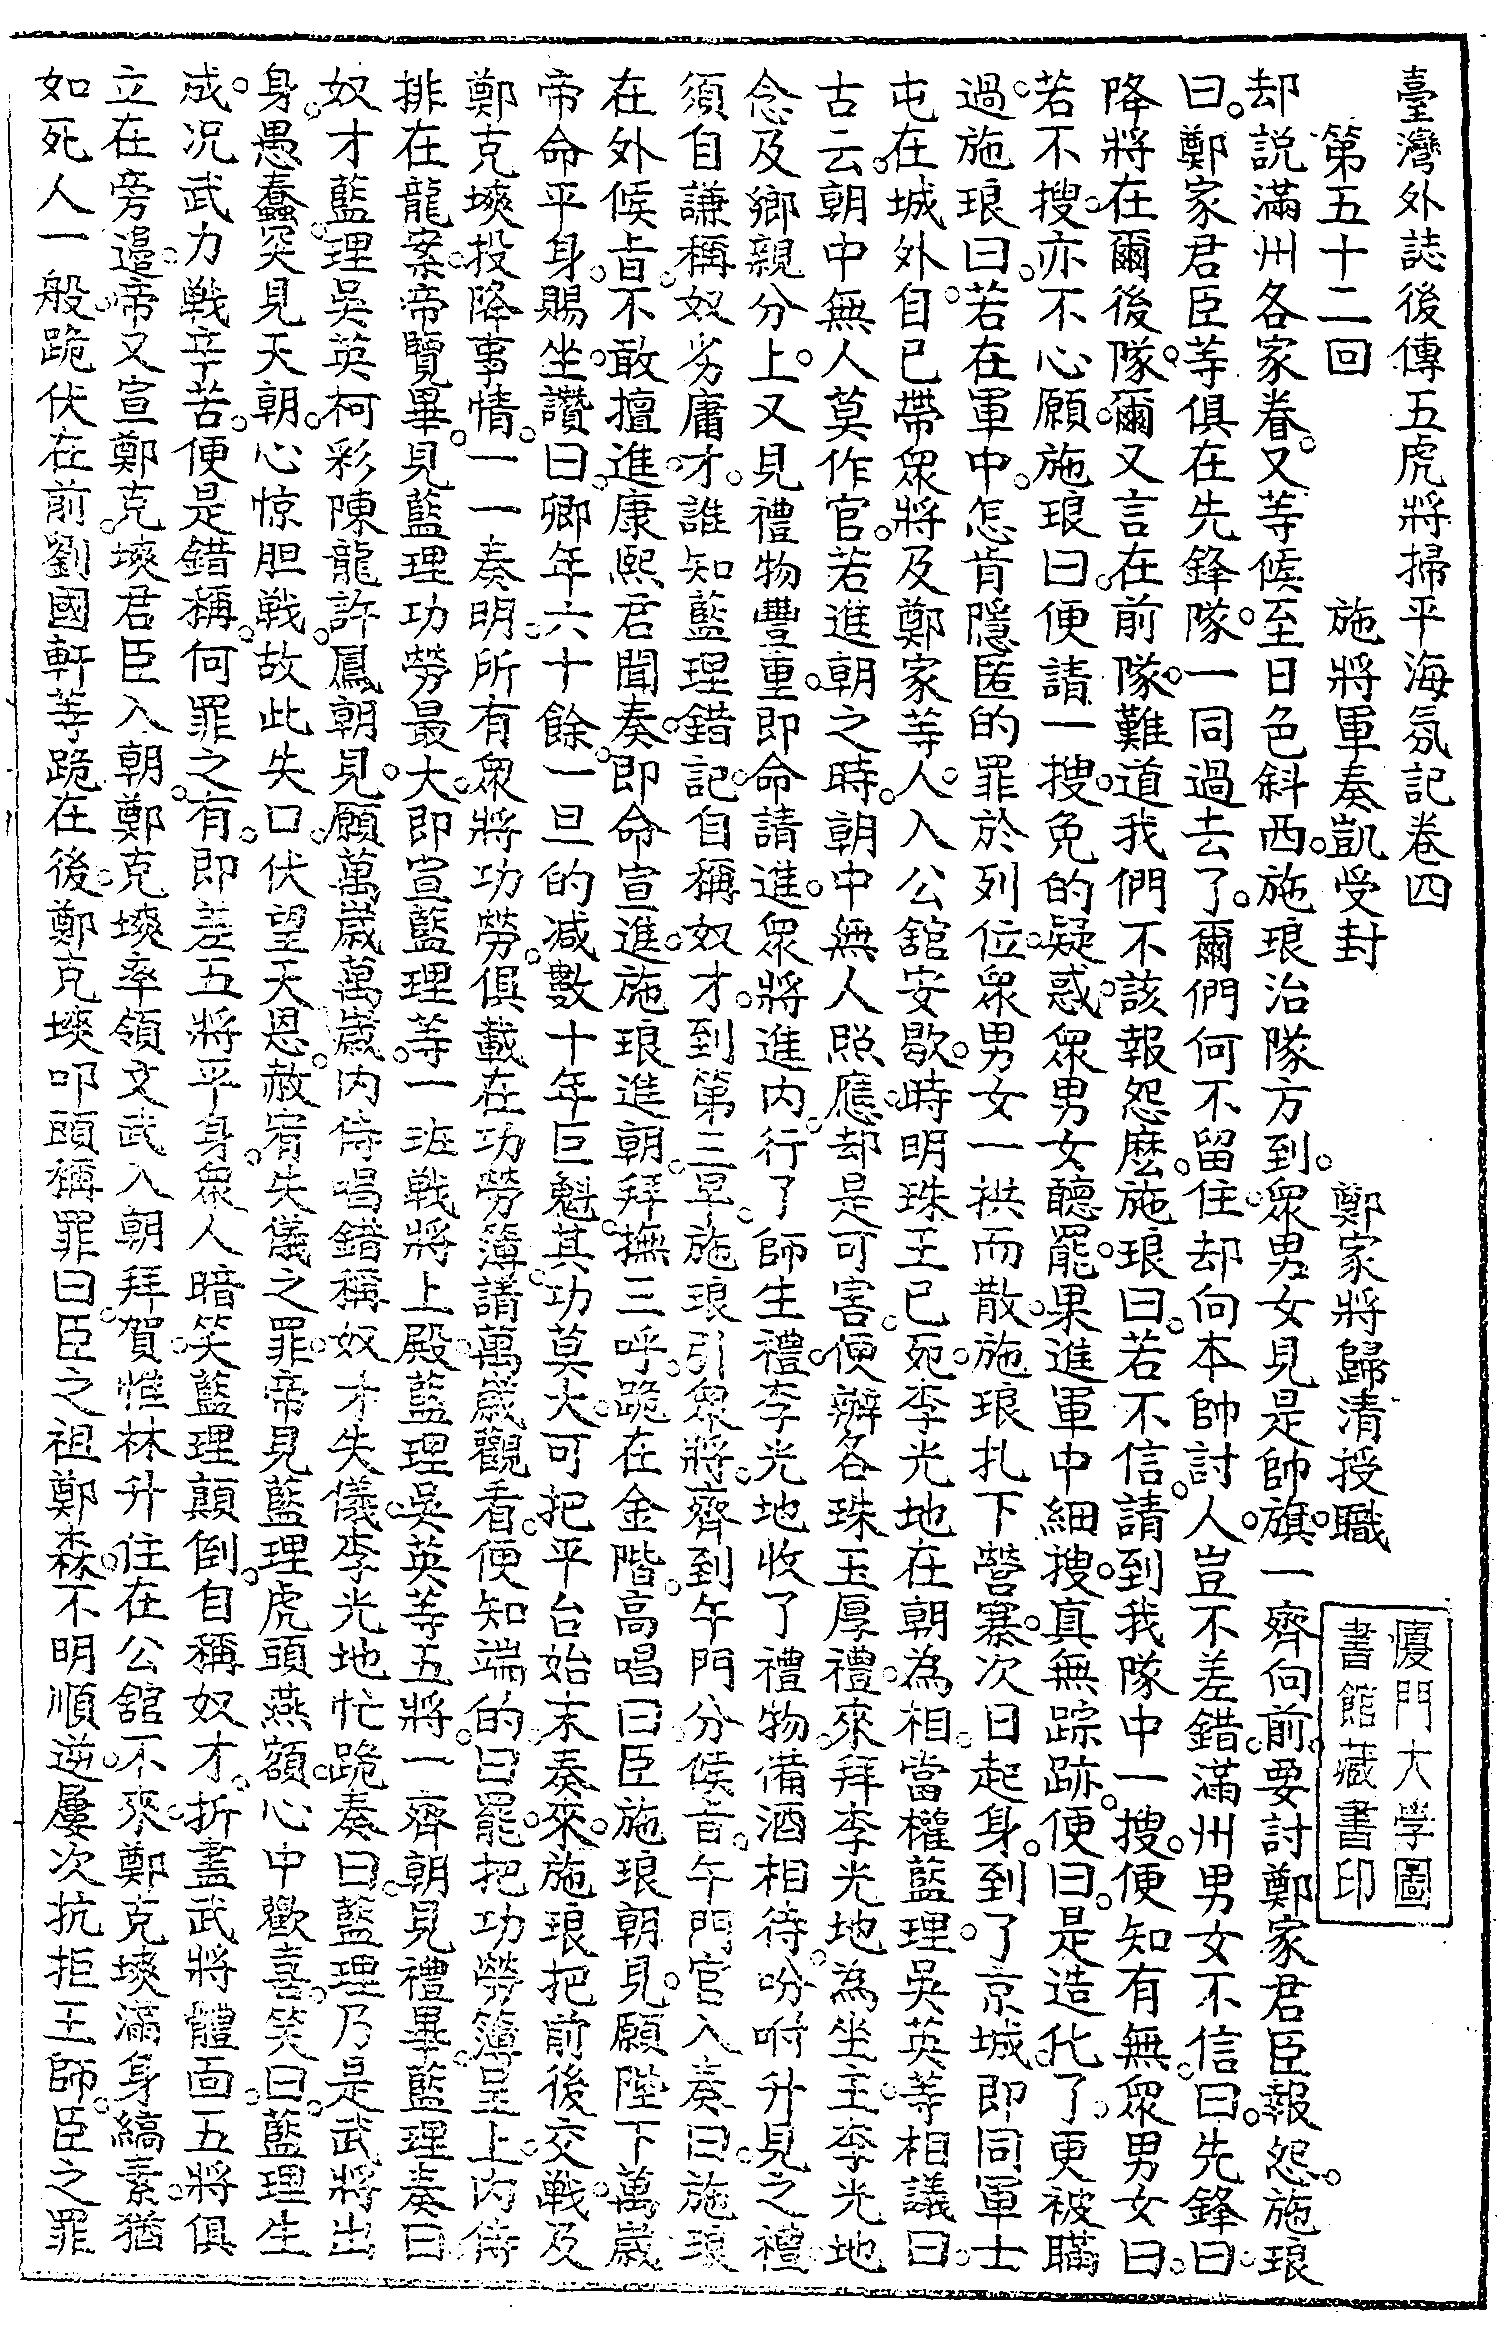 臺灣外誌後傳五虎將掃平海氛記卷四
第五十二回　施將軍奏凱受封　鄭家將歸清授職
却説滿州各家眷。又等候至日色斜西。施琅治隊方到。衆男女見是帥旗。一齊向前。要討鄭家君臣報怨。施琅
曰。鄭家君臣等俱在先鋒隊。一同過去了。爾們何不留住。却向本帥討人。豈不差錯。滿州男女不信曰。先鋒曰。
降將在爾後隊。爾又言在前隊。難道我們不該報怨麼。施琅曰。若不信。請到我隊中一搜。便知有無。衆男女曰。
若不搜。亦不心願。施琅曰。便請一搜。免的疑惑。衆男女聽罷。果進軍中細搜。真無踪跡。便曰。是造化了。更被瞞
過。施琅曰。若在軍中。怎肯隱匿的罪於列位。衆男女一拱而散。施琅扎下營寨。次日起身。到了京城。即同軍士
屯在城外。自己帶衆將及鄭家等人。入公舘安歇。時明珠王已死。李光地在朝為相。當權藍理。吳英等相議曰。
古云。朝中無人莫作官。若進朝之時。朝中無人照應。却是可害。便辦各珠玉厚禮。來拜李光地為坐主。李光地
念及鄉親分上。又見禮物豐重。即命請進。衆將進内。行了師生禮。李光地收了禮物。備酒相待。吩咐升見之禮。
須自謙稱奴劣庸才。誰知藍理錯記自稱奴才。到第三早。施琅引衆將。齊到午門分候旨。午門官入奏曰。施琅
在外候旨。不敢擅進。康熙君聞奏。即命宣進。施琅進朝。拜撫三呼。跪在金階。高唱曰。臣施琅朝見。願陛下萬歲
帝命平身。賜坐。讚曰。卿年六十餘。一旦的减數十年巨魁。其功莫大。可把平台始末奏來。施琅把前後交戰。及
鄭克塽投降事情。一一奏明。所有衆將功勞。俱載在功勞簿。請萬歲觀看。便知端的。曰罷。把功勞簿呈上。内侍
排在龍案。帝覽畢。見藍理功勞最大。即宣藍理等。一班戰將上殿。藍理吳英等五將。一齊朝見禮畢。藍理奏曰
奴才藍理吳英柯彩陳龍許鳳朝見。願萬歲萬歲。内侍唱錯稱奴才失儀。李光地忙跪奏曰。藍理乃是武將出
身。愚蠢。突見天朝。心惊胆戰。故此失口。伏望天恩。赦宥失儀之罪。帝見藍理虎頭燕額。心中歡喜。笑曰。藍理生
成。况武力戰辛苦。便是錯稱。何罪之有。即差五將平身。衆人暗笑藍理顛倒。自稱奴才。折盡武將體面。五將俱
立在旁邉。帝又宣鄭克塽君臣入朝。鄭克塽率領文武入朝拜賀。惟林升住在公舘不來。鄭克塽滿身縞素。猶
如死人一般。跪伏在前。劉國軒等跪在後。鄭克塽叩頭稱罪曰。臣之祖鄭森。不明順逆。屢次抗拒王師。臣之罪
厦門大学圖
書館藏書印